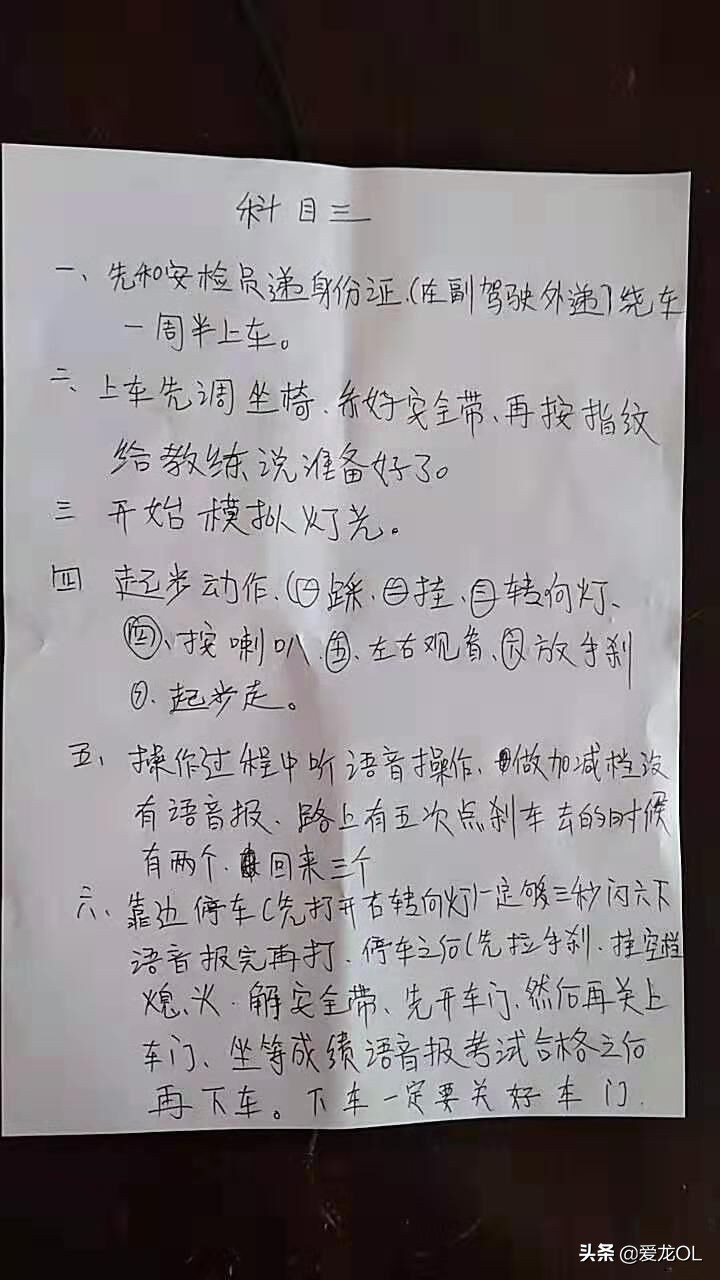 科目三
一、先和安检员递身份证.(在副驾驶外递)绕车
一周半上车。
二、上车先调坐椅、系好安全带、再按指纹
给教练说准备好了。
三 开始模拟灯光。
四 起步动作、㊀踩、㊁挂、㊂转向灯、
㊃、按喇叭、㊄、左右观看、㊅放手刹
㊆、起步走。
五、操作过程中听语音操作、做加减档没
有语音报、路上有五次点刹车去的时候
有两个、回来三个
六、靠边停车(先打开右转向灯)一定够三秒闪六下
语音报完再打、停车之后(先拉手刹、挂空档
熄、火、解安全带、先开车门、然后再关上
车门、坐等成绩语音报考试合格之后
再下车。下车一定要关好车门.
头条 @爱龙OL